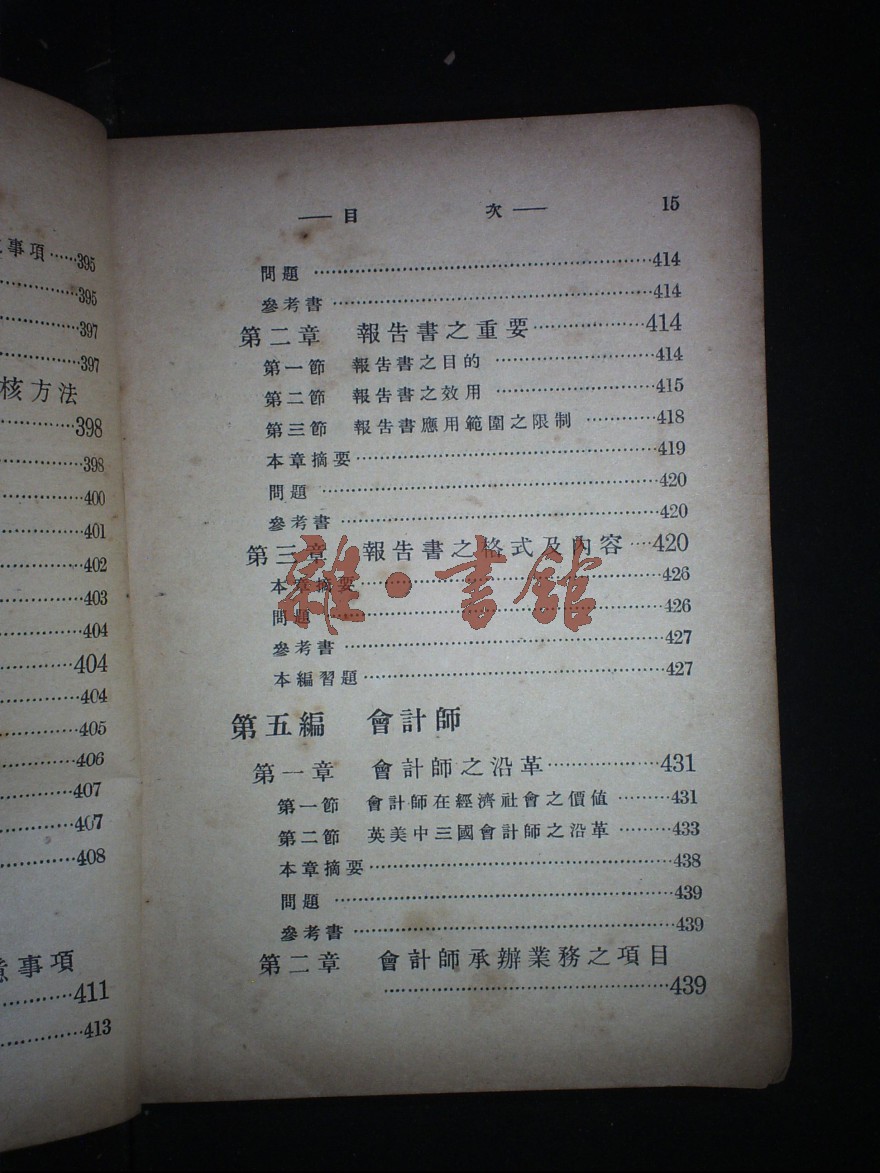 事項……395
……395
……397
……397
核方法
……398
……398
……400
……401
……402
……403
……404
……404
……404
……405
……406
……407
……407
……408
意事項
……411
……413
——目 次—— 15
問題……414
參考書……414
第二章 報告書之重要……414
第一節 報告書之目的……414
第二節 報告書之效用……415
第三節 報告書應用範圍之限制……418
本章摘要……419
問題……420
參考書……420
第三章 報告書之格式及內容……420
本章摘要……426
問題……426
參考書……427
本編習題……427
第五編 會計師
第一章 會計師之沿革……431
第一節 會計師在經濟社會之價値……431
第二節 英美中三國會計師之沿革……433
本章摘要……438
問題……439
參考書……439
第二章 會計師承辦業務之項目
……439
雜·書館